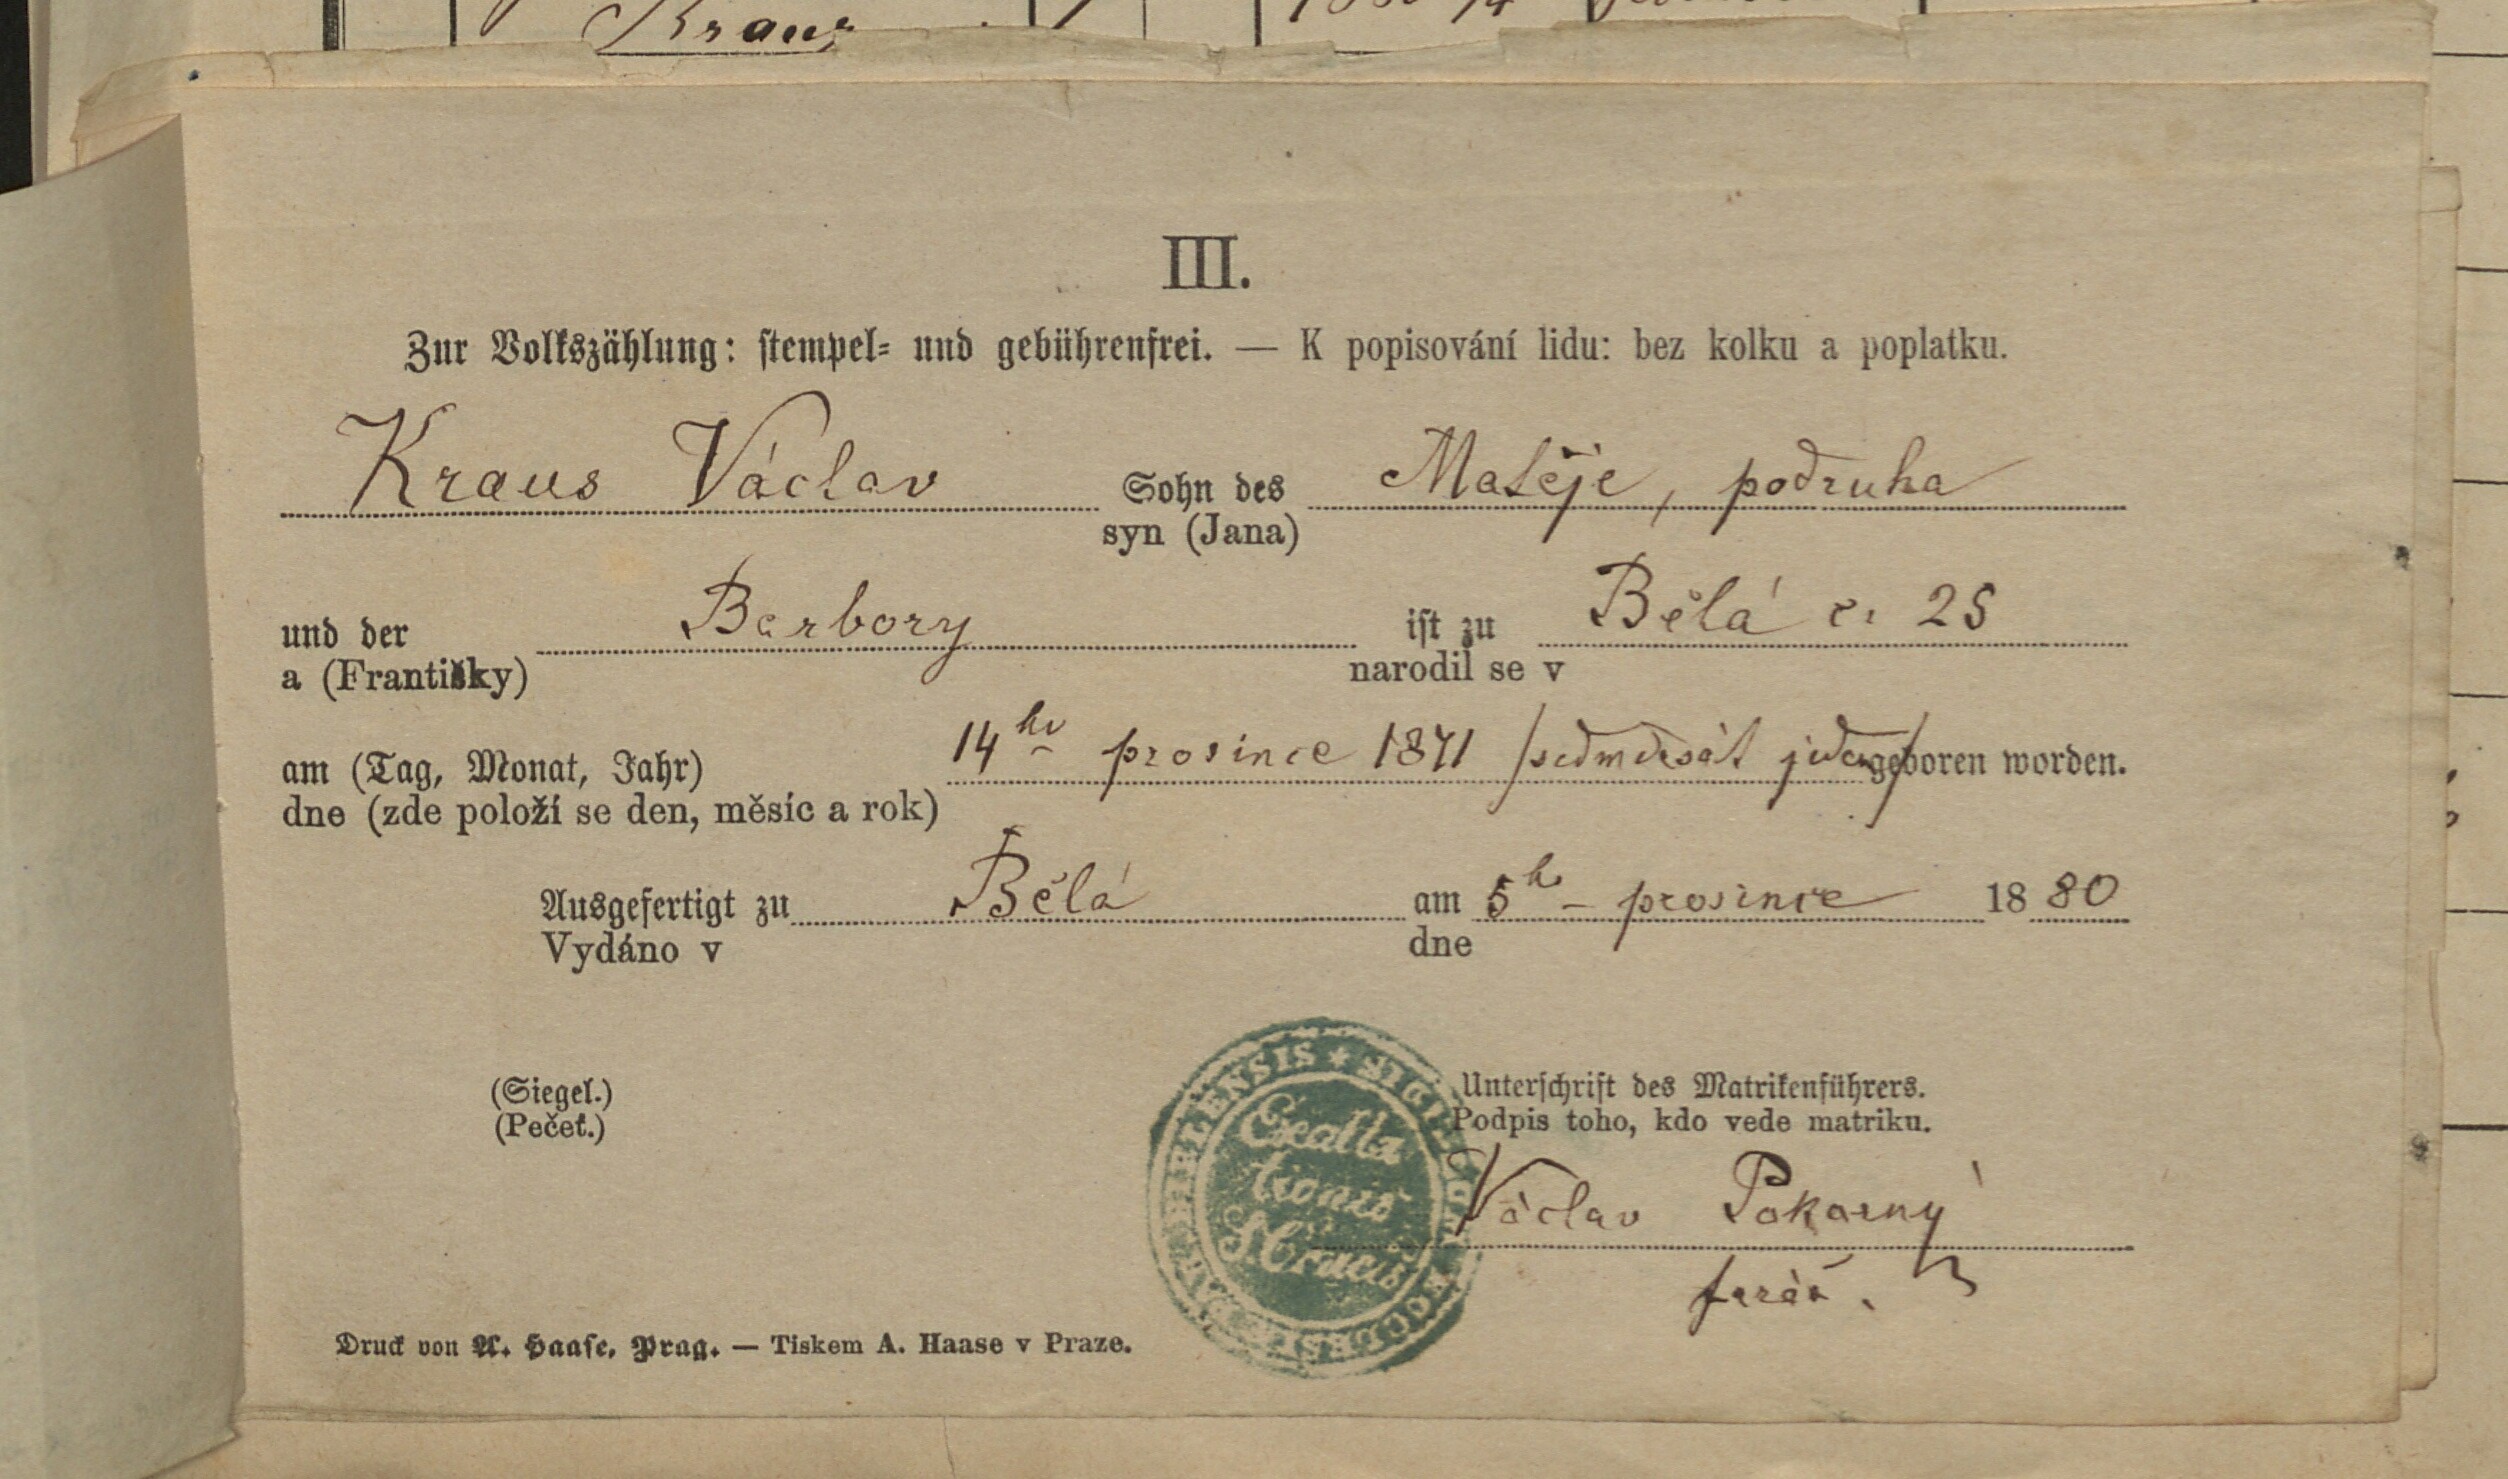 Kraus
III.
Zur Volkszählung: stempel- und gebührenfrei. — K popisování lidu: bez kolku a poplatku.
Kraus Václav Sohn des Matěje, podruha
syn (Jana)
und der Barbory ist zu Bělá č. 25
a (Františky) narodil se v
am (Tag, Monat, Jahr) 14ho prosince 1871 /sedmdesát jeden/ geboren worden.
dne (zde položí se den, měsíc a rok)
Ausgefertigt zu Bělá am 5ho prosince 1880
Vydáno v dne
(Siegel.) Unterschrift des Matrikenführers.
(Pečeť.) Podpis toho, kdo vede matriku.
Václav Pokorný
farář.
Exalta
tionis
S Crucis
Druck von A. Haase, Prag. — Tiskem A. Haase v Praze.